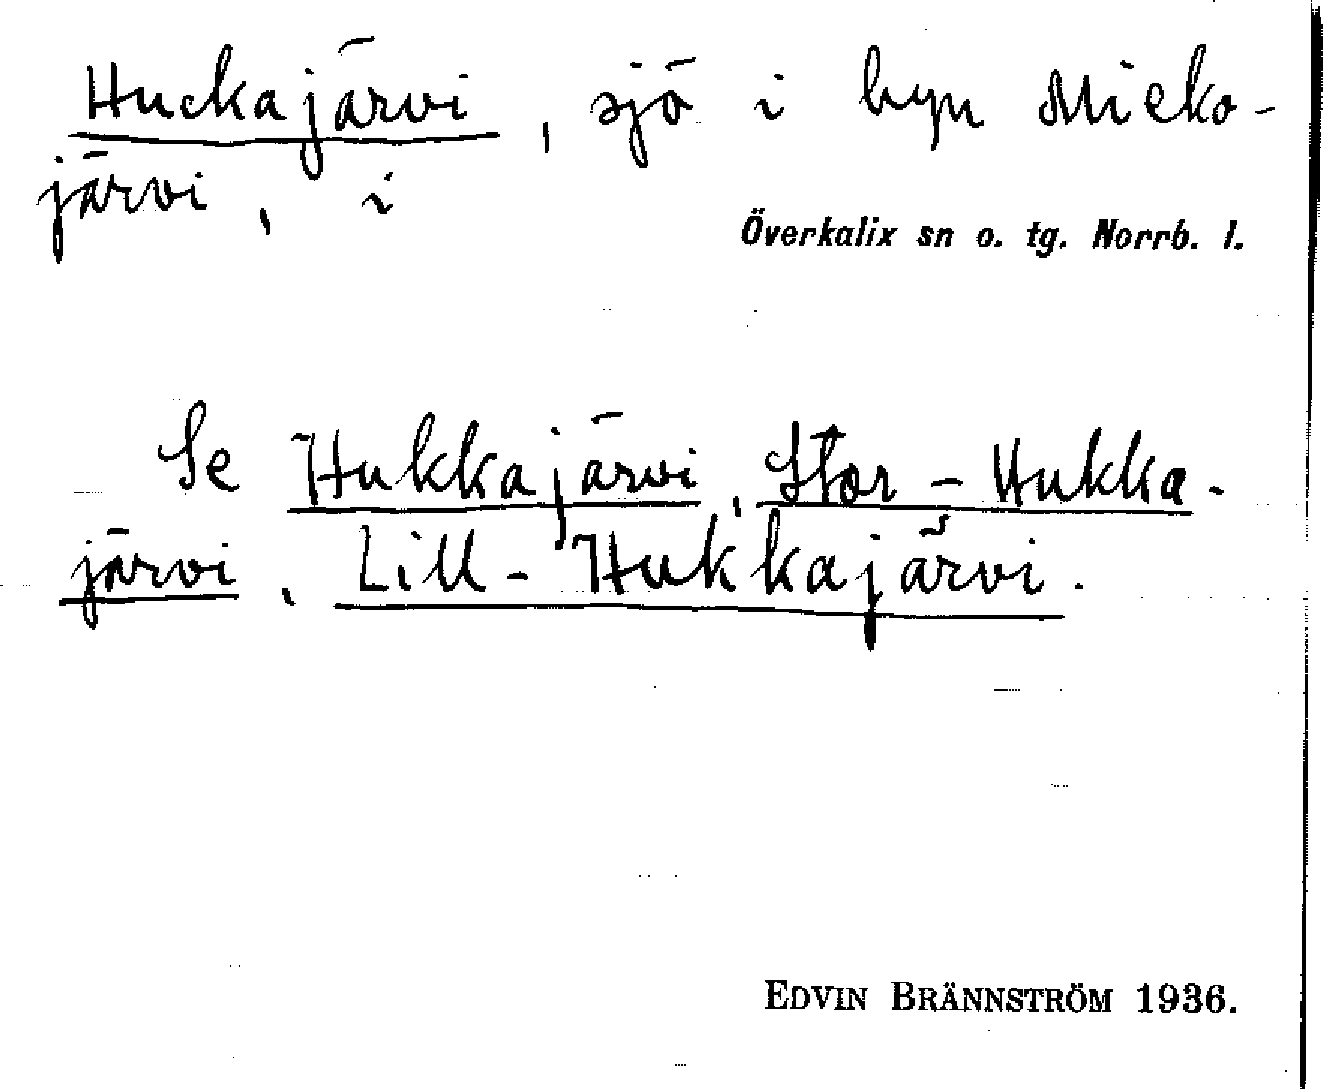 Huckajärvi, sjö i byn Mieko-
järvi, i
Överkalix sn o. tg. Norrb. l.
Se Hukkajärvi, Stor-Hukka-
järvi, Lill-Hukkajärvi.
EDVIN BRÄNNSTRÖM 1936.